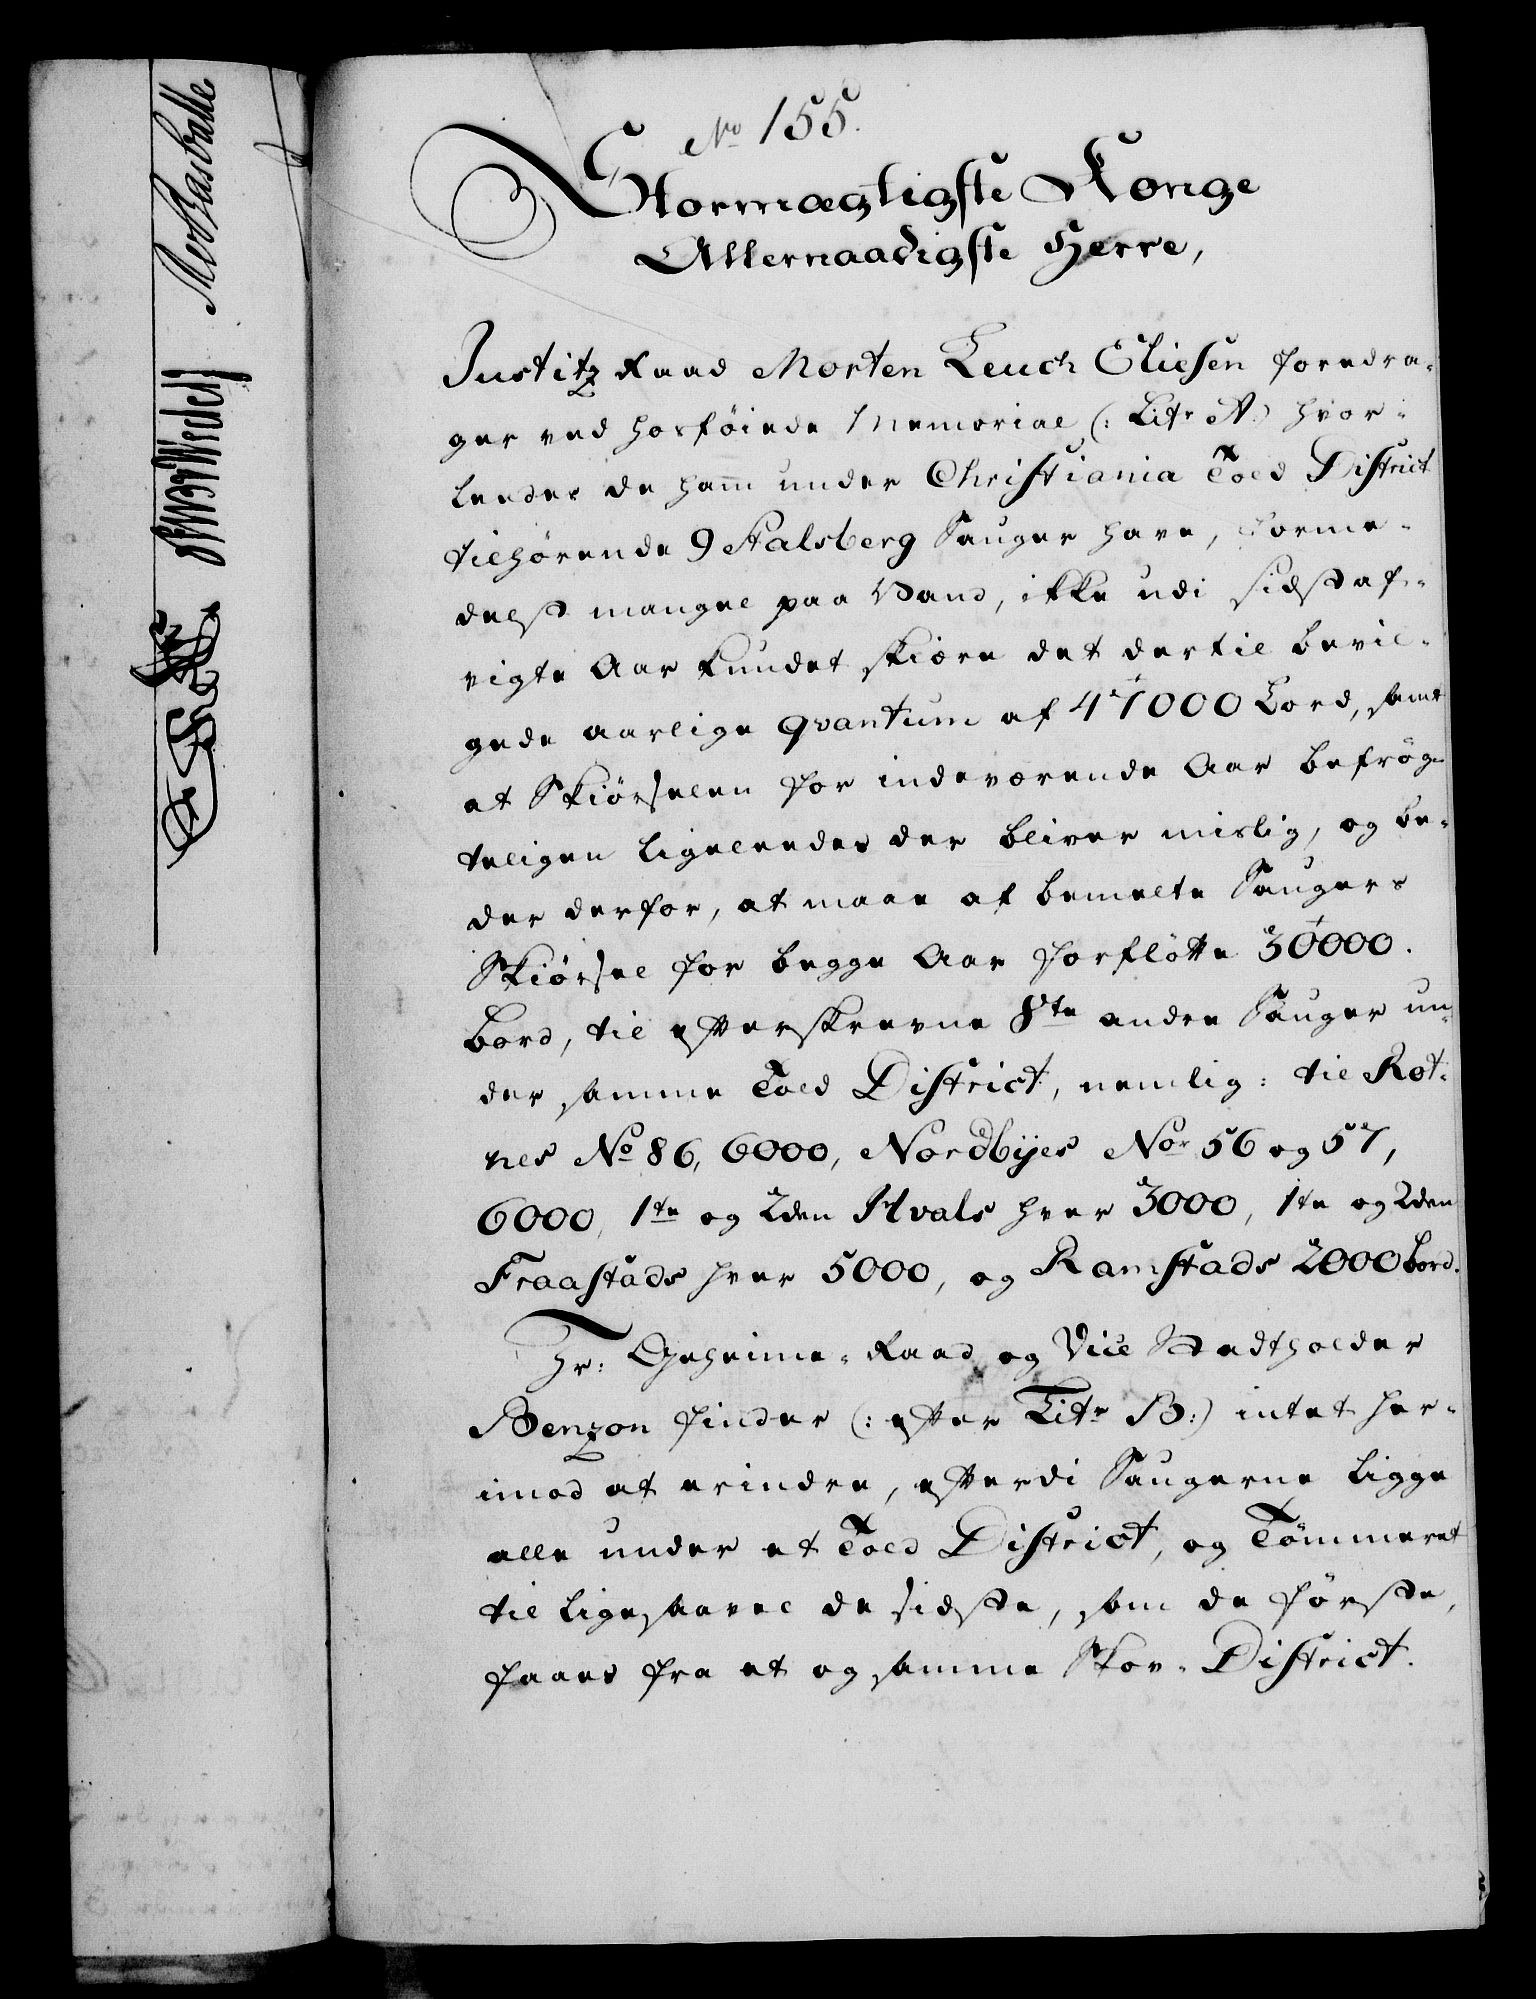 No 155.
Stormægtigste Konge
Allernaadigste Herre,
Justitz Raad Morten Leuch Eliesen foredra-
ger ved hosføiede Memorial (: Litr A:) hvor-
leedes de ham under Christiania Told District
tilhørende 9 Stalsberg Sauger have, forme-
delst mangel paa Vand, ikke udi sidst af-
vigte Aar kundet skiære det dertil bevil-
gede aarlige qvantum af 47000 Bord, samt
at Skiørselen for indeværende Aar befrög-
teligen ligeleedes der bliver mislig, og be-
der derfor, at maae af bemelte Saugers
Skiørsel for begge Aar forflötte 30000.
Bord, til efterskrevne 8te andre Sauger un-
der samme Told District, nemlig: til Rot-
nes No 86, 6000, Nordbÿes Nor 56 og 57,
6000, 1te og 2den Hvals hver 3000, 1te og 2den
Fraastads hver 5000, og Ramstads 2000 bord.
Hr: Geheime-Raad og Vice Stadtholder
Benzon finder (: efter Litr B:) intet her-
imod at erindre, efterdi Saugerne ligge
alle under et Told District, og Tömmeret
til ligesaavel de sidste, som de förste,
faaes fra et og samme Skov-District.